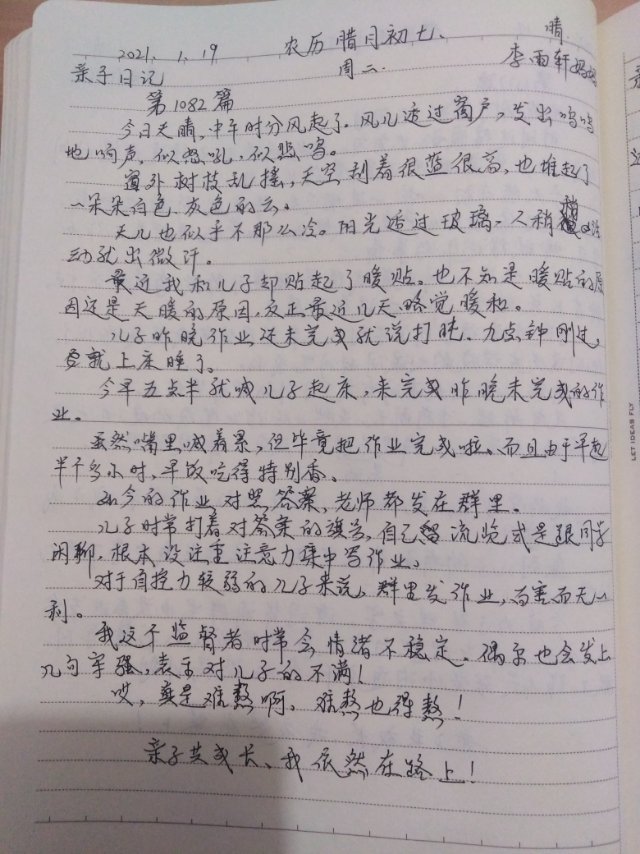 2021、1、19 农历腊月初七、 晴
亲子日记 周二、 李雨轩妈妈
第1082篇
今日天晴,中午时分风起了.风儿透过窗户,发出呜呜
地响声,似怒吼,似悲鸣。
窗外树枝乱摇,天空刮着很蓝很高,也堆起了
一朵朵白色、灰色的云。
天儿也似乎不那么冷。阳光透过玻璃、人稍
动就出微汗。
最近我和儿子却贴起了暖贴。也不知是暖贴的原
因还是天暖的原因,反正最近几天略觉暖和。
儿子昨晚作业还未完成就说打盹、九点钟刚过,
就上床睡了。
今早五点半就喊儿子起床,来完成昨晚未完成的作
业。
虽然嘴里喊着累,但毕竟把作业完成啦。而且由于早起
半个多小时,早饭吃得特别香。
如今的作业,对照答案,老师都发在群里。
儿子时常打着对答案的旗号,自己 流览或是跟同学
闲聊,根本没注重注意力集中写作业、
对于自控力较弱的儿子来说,群里发作业,百害而无一
利。
我这个监督者时常会情绪不稳定。偶尔也会发上
几句牢骚,表示对儿子的不满!
哎,真是难熬啊,难熬也得熬!
亲子共成长、我依然在路上!
LET IDEAS FLY